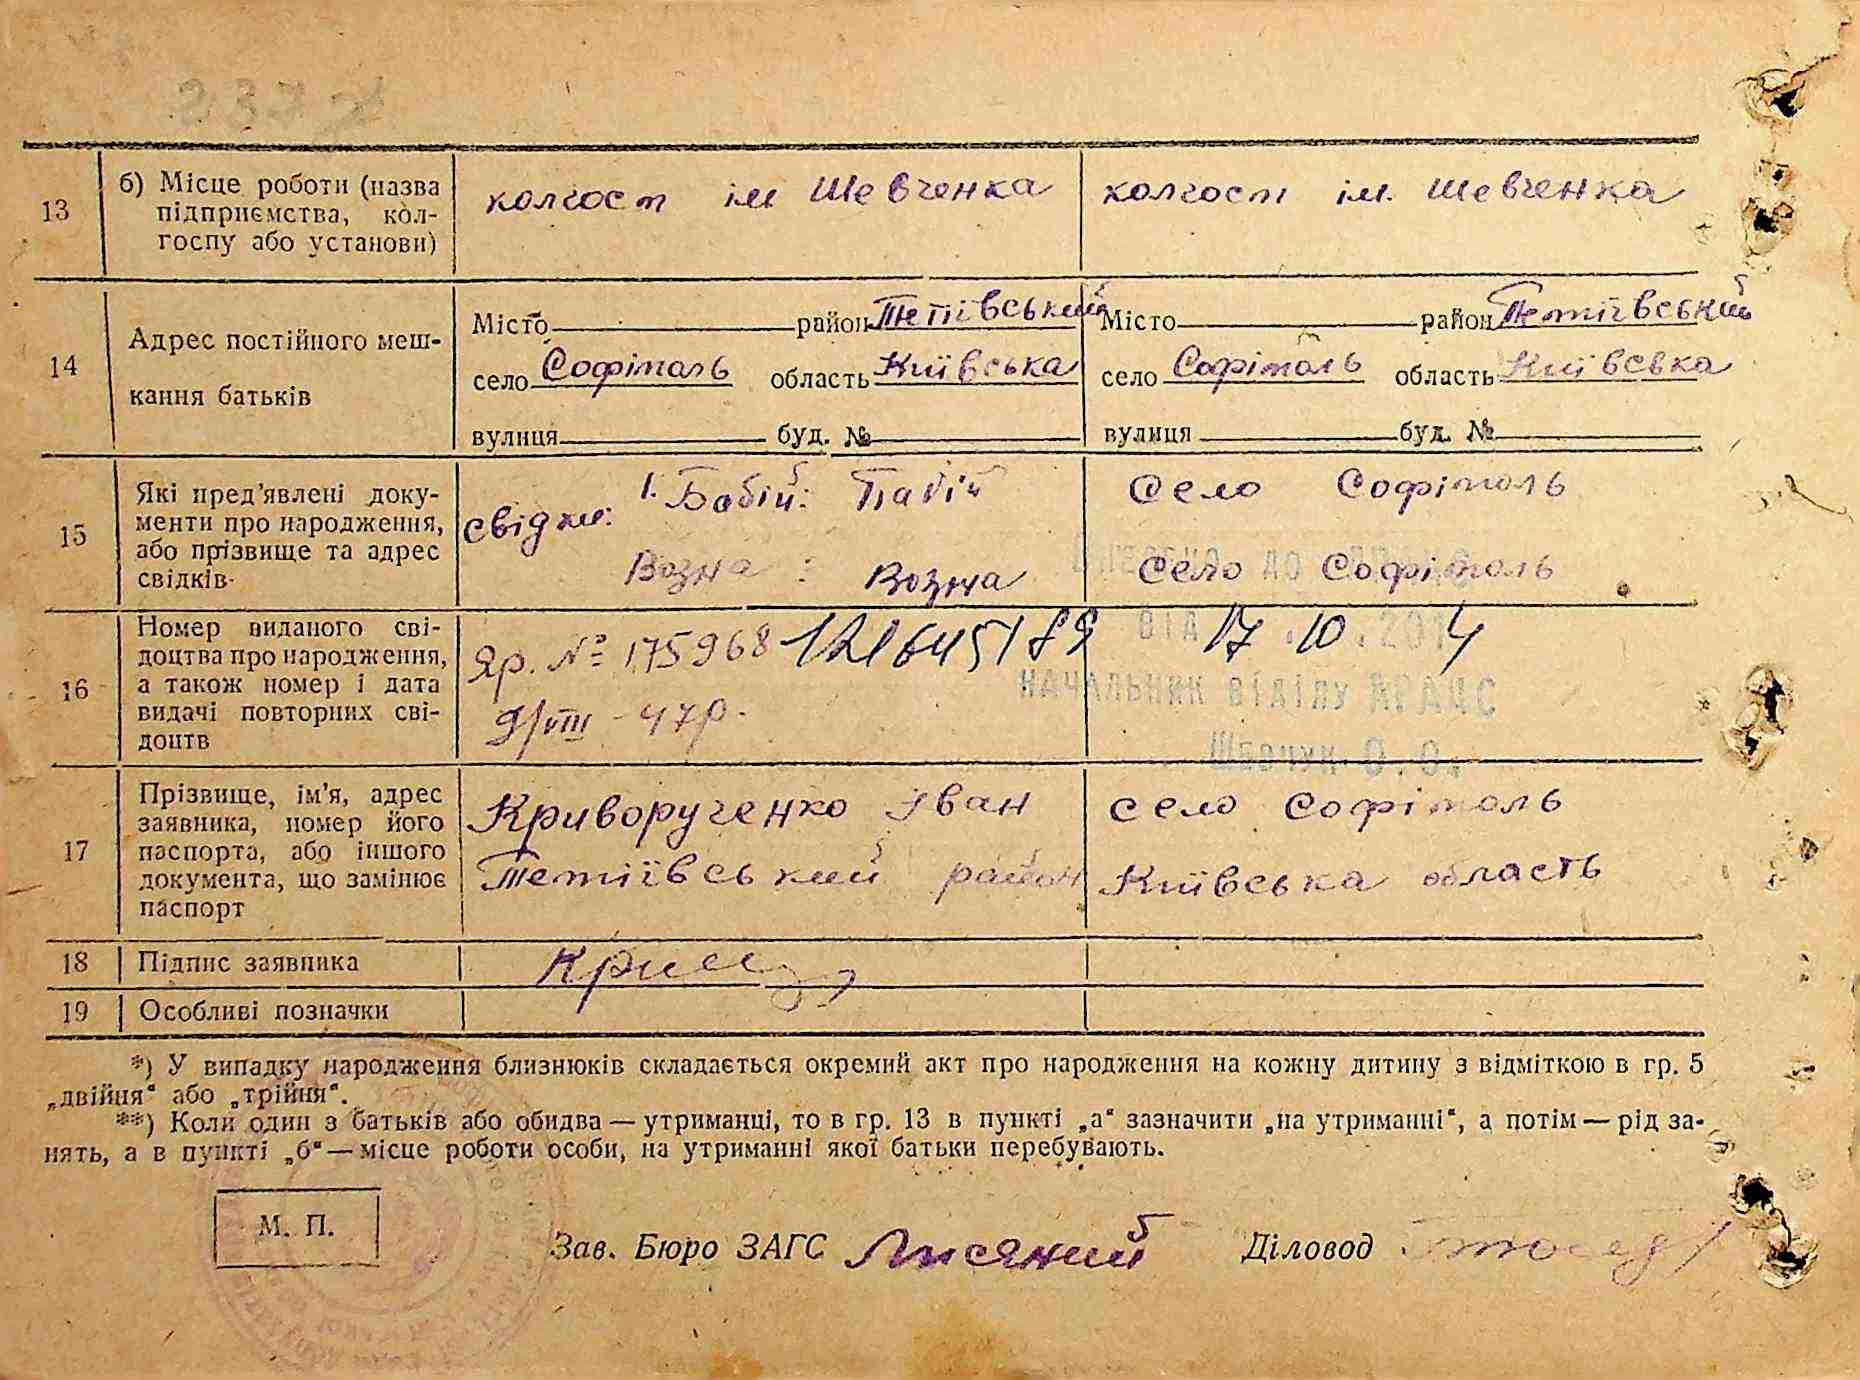 13 б) Місце роботи (назва підприємства, кол-госпу або установи)
колгосп ім Шевченка
колгосп ім. Шевченка
14 Адрес постійного меш-кання батьків
Місто район Тетіївський
село Софіполь область Київська
вулиця буд. №
Місто район Тетіївський
село Софіполь область Київська
вулиця буд. №
15 Які пред'явлені доку-
менти про народження,
або прізвище та адрес
свідків
свідки: 1. Бабій: Бабій село Софіполь
Возна : Возна село Софіполь
16 Номер виданого сві-
доцтва про народження,
а також номер і дата
видачі повторних сві-
доцтв
Яр. № 175968
9/VIII - 47р.
від 17.10.2014
НАЧАЛЬНИК ВІДІЛУ ДРАЦС
Шевчук О.О.
17 Прізвище, ім'я, адрес
заявника, номер його
паспорта, або іншого
документа, що замінює
паспорт
Криворученко Іван село Софіполь
Тетіївський район Київська область
18 Підпис заявника
19 Особливі позначки
*) У випадку народження близнюків складається окремий акт про народження на кожну дитину з відміткою в гр. 5
„двійня“ або „трійня“.
**) Коли один з батьків або обидва — утриманці, то в гр. 13 в пункті „а“ зазначити „на утриманні“, а потім — рід за-
нять, а в пункті „б“ — місце роботи особи, на утриманні якої батьки перебувають.
М. П.
Зав. Бюро ЗАГС Лисяний Діловод